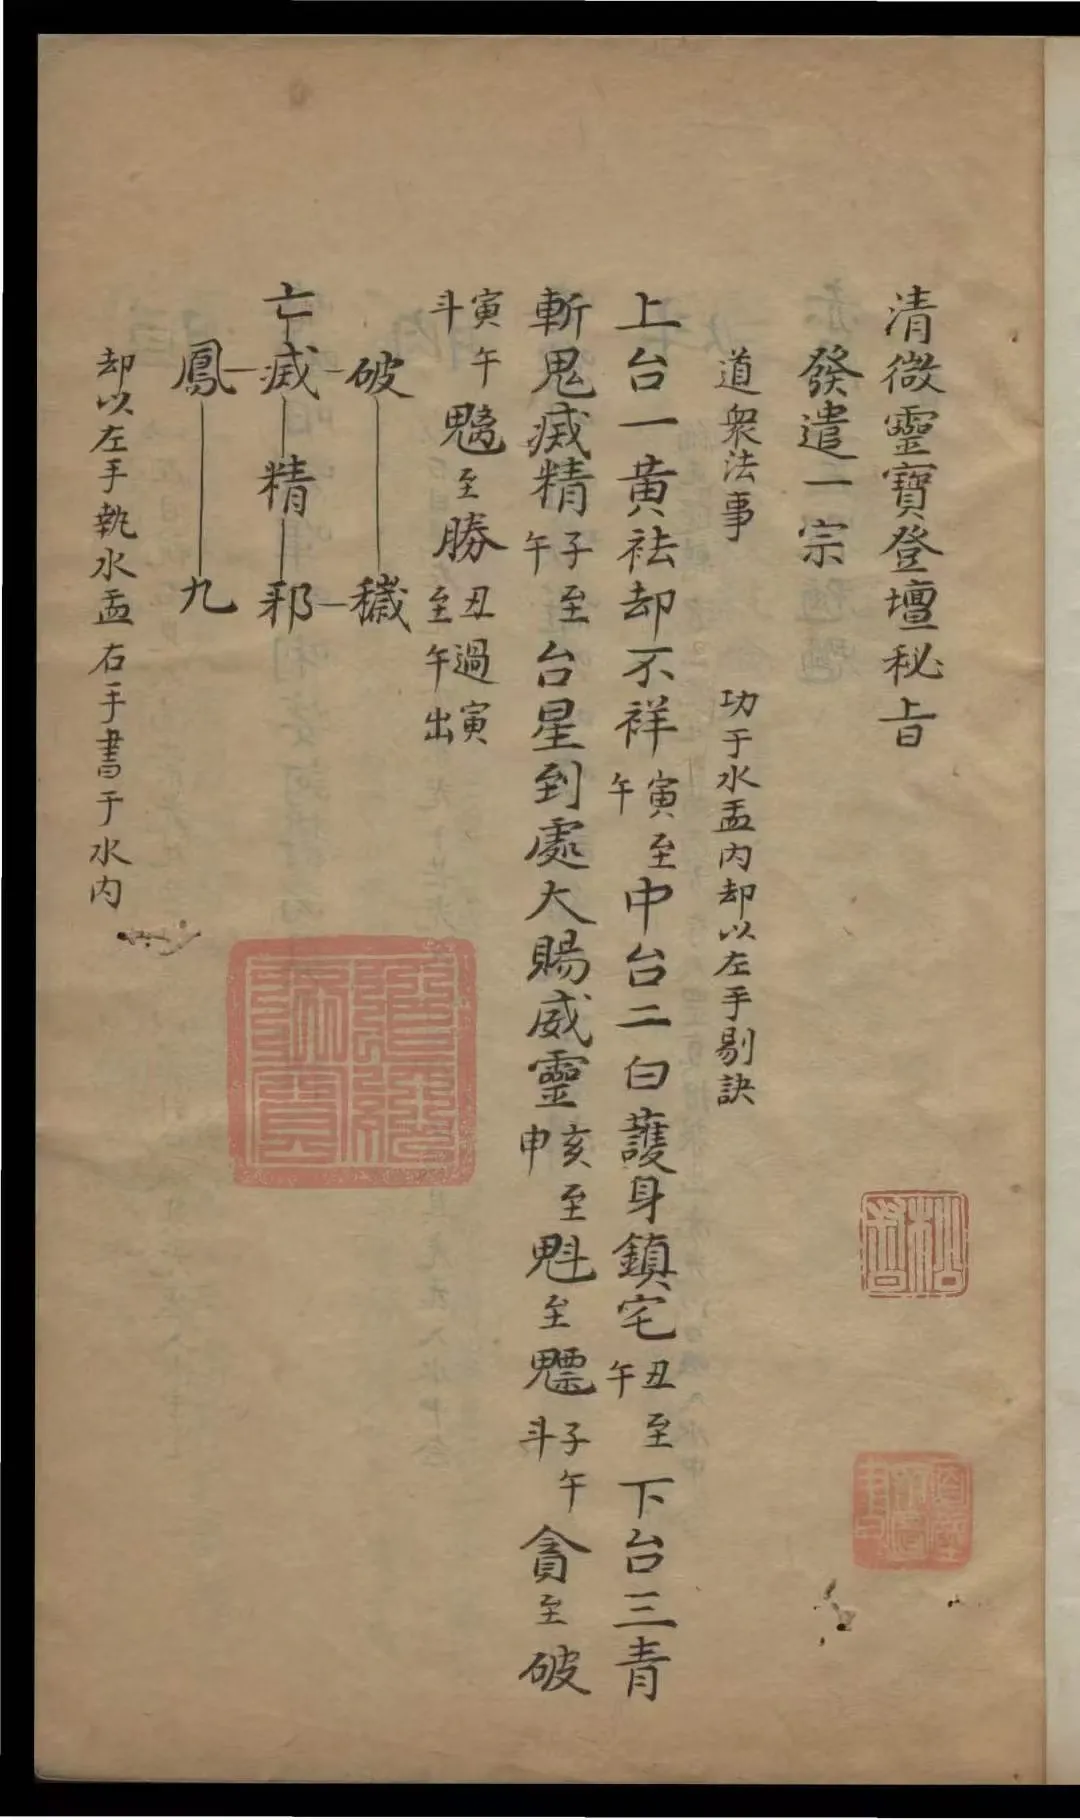 清微靈寶登壇秘旨
發遣一宗
道衆法事 功于水盂内却以左手剔訣
上台一黄祛却不祥寅至午中台二白護身鎮宅丑至午下台三青
斬鬼烕精子至午台星到處大賜威靈亥至申魁至魒子午斗貪至破
寅午斗魓至勝丑過寅至午出
破 穢
亡烕精邪
鳳 九
却以左手執水盂右手書于水内